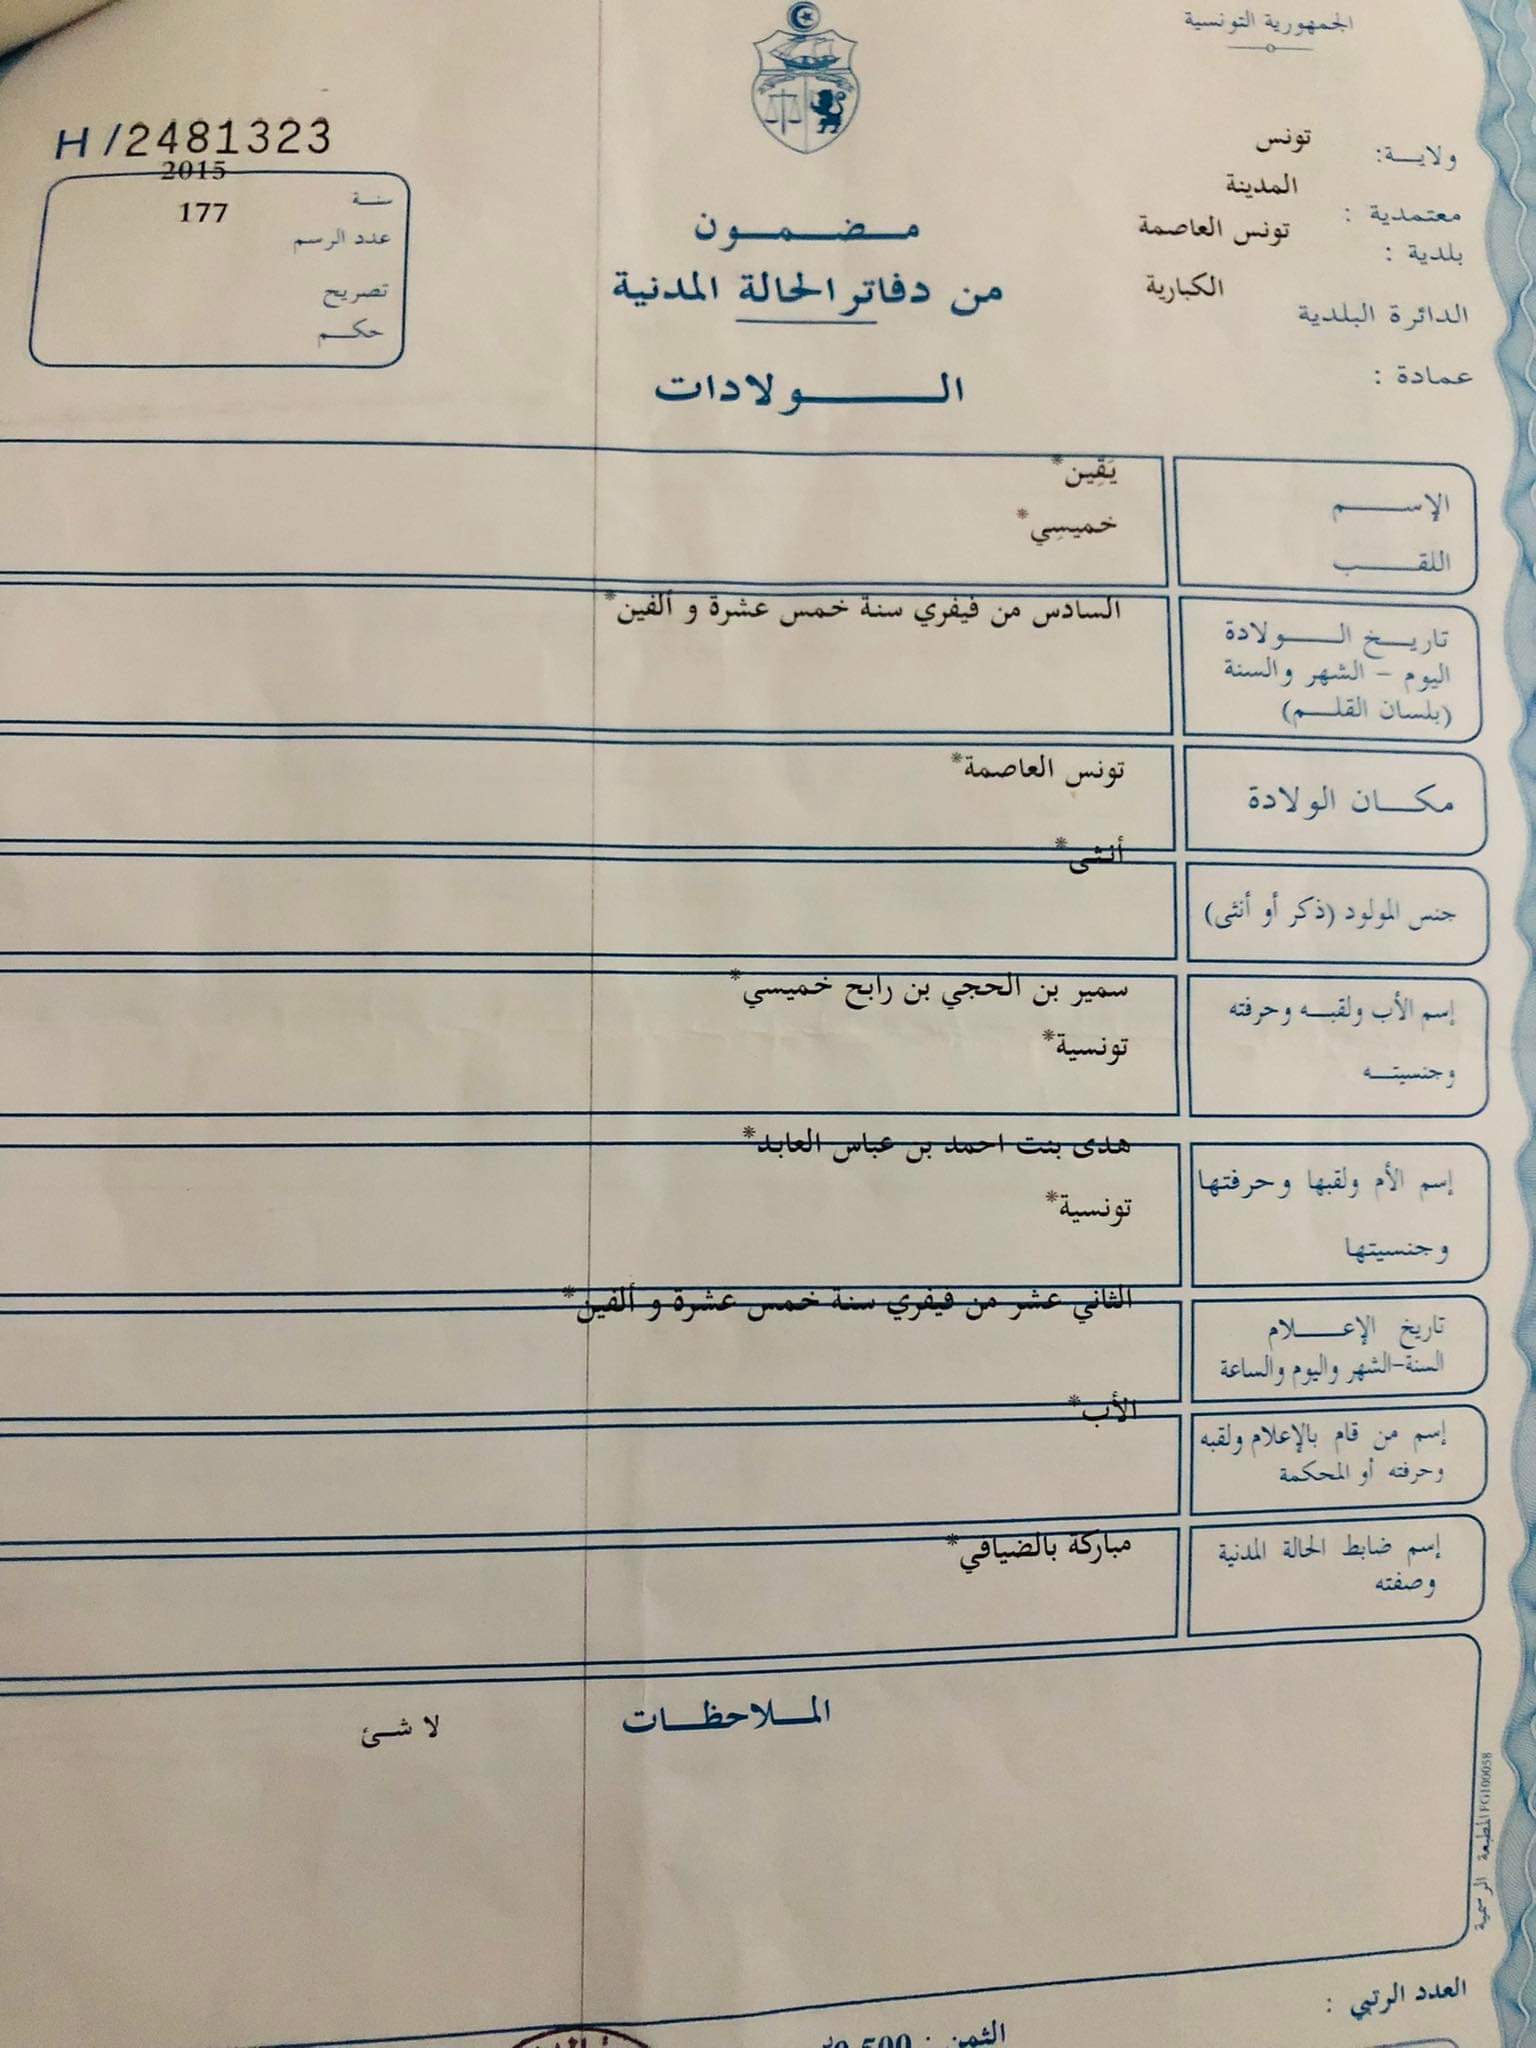 الجمهورية التونسية
ولايـة: تونس
معتمدية : المدينة
بلدية : تونس العاصمة
الدائرة البلدية الكبارية
عمادة :
مـضـمـون
من دفاتر الحالة المدنية
الـولادات
H/2481323
سنـة 2015
عدد الرسم 177
تصريح
حكـم
الإسـم يَقِين*
اللقـب خميسِي*
تاريـخ الـولادة
اليوم - الشهر والسنة
(بلسان القلـم)
السادس من فيفري سنة خمس عشرة و ألفين*
مكـان الولادة تونس العاصمة*
جنس المولود (ذكر أو أنثى) أنثى*
إسم الأب ولقبـه وحرفته سمير بن الحجي بن رابح خميسي*
وجنسيتـه تونسية*
إسم الأم ولقبها وحرفتها هدى بنت احمد بن عباس العابد*
وجنسيتها تونسية*
تاريخ الإعـلام
السنة-الشهر واليوم والساعة
الثاني عشر من فيفري سنة خمس عشرة و ألفين*
إسم من قام بالإعلام ولقبه
وحرفته أو المحكمة
الأب*
إسم ضابط الحالة المدنية
وصفته
مباركة بالضيافي*
المـلاحظـات
لا شئ
المطبعة الرسمية FG100058
العدد الرتبي :
الثمن : 0,500